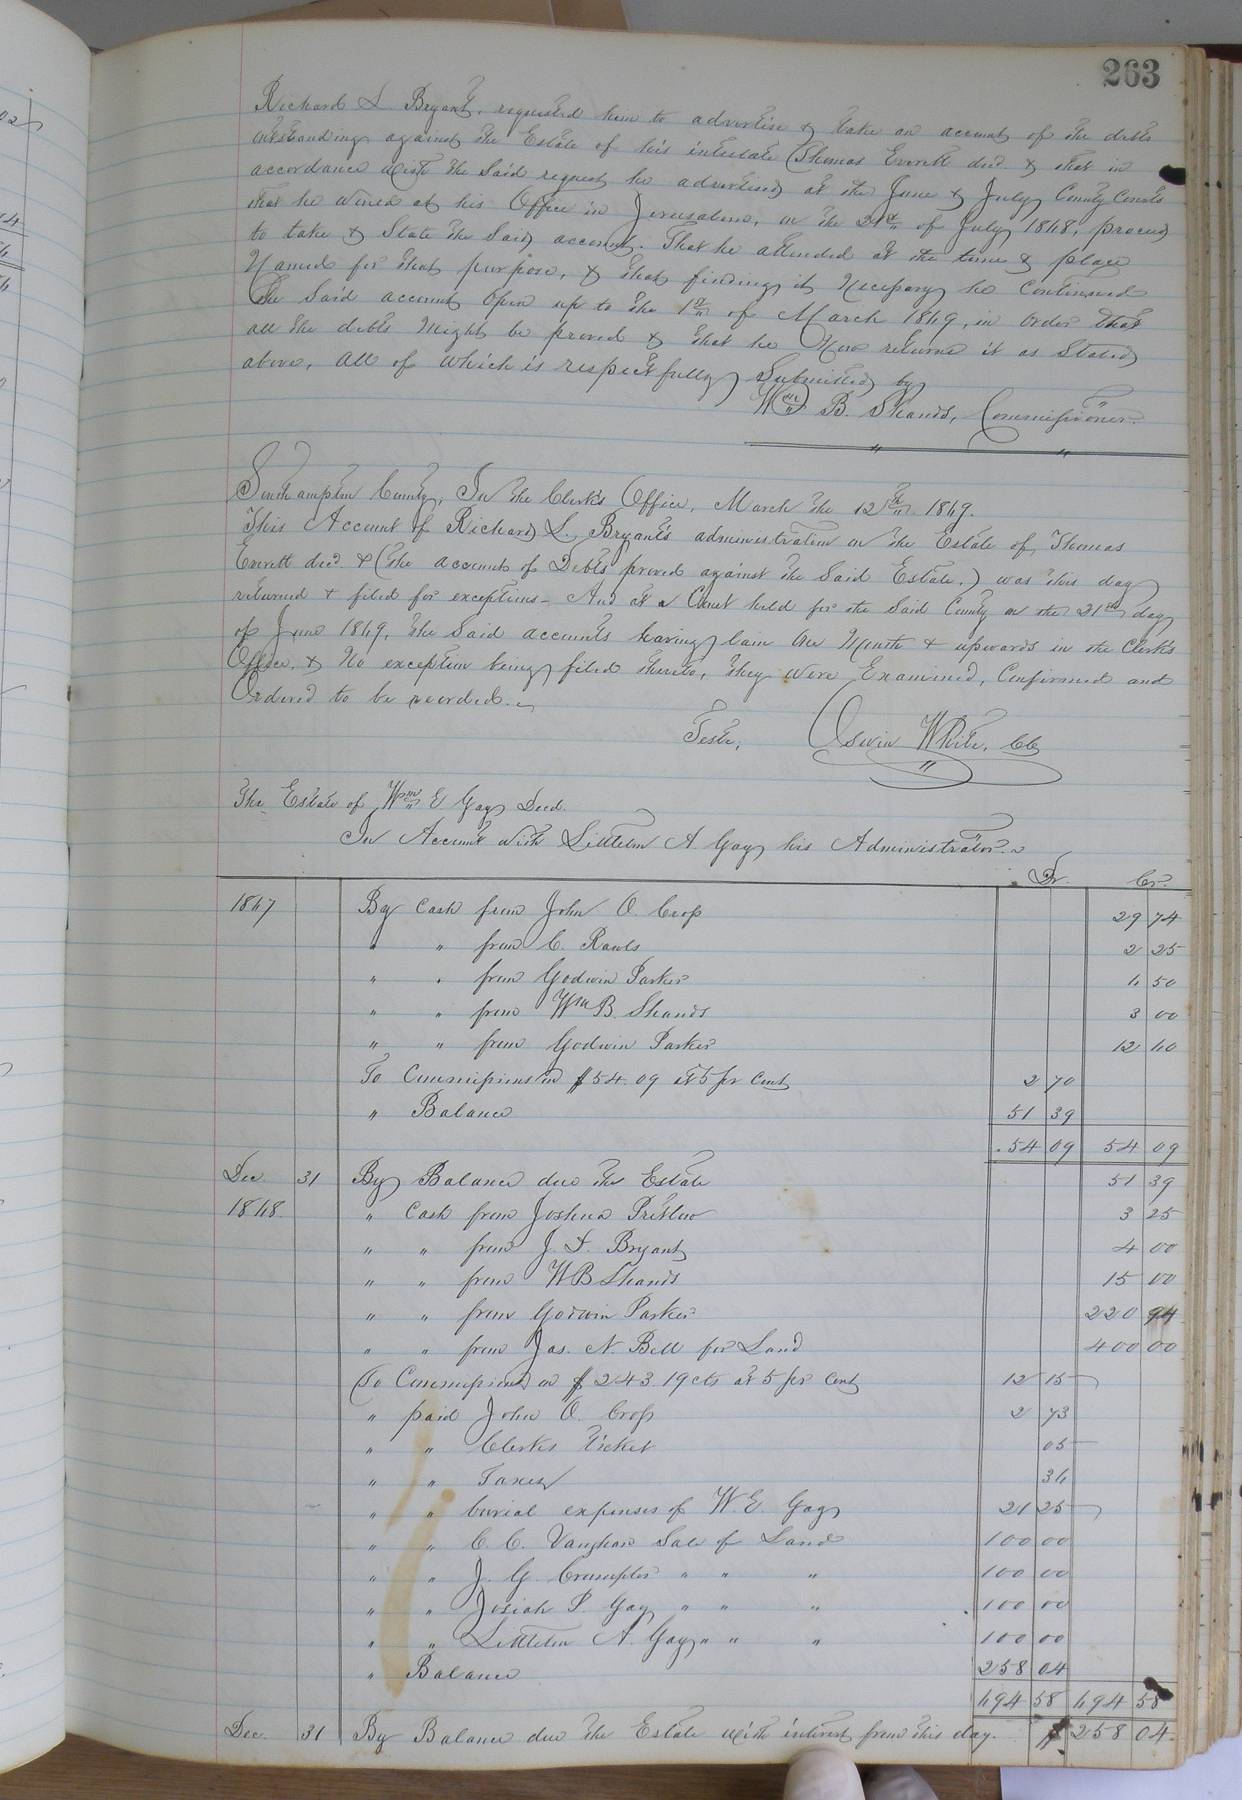 263
Richard L. Bryant, requested him to advertise & take an account of the debts
outstanding against the Estate of his intestate (Thomas Everett decd. & that in
accordance with the said request he advertised at the June & July County Courts
that he would at his Office in Jerusalem, on the 21st of July 1868, proceed
to take & State the Said account. That he attended at the time & place
Named for that purpose, & that finding it Necessary he continued
The Said account open up to the 1st of March 1869, in order that
all the debts might be proved & that he now returns it as Stated
above, all of which is respectfully Submitted by
Wm B. Shands, Commissioner.
Southampton County, In the Clerk's Office, March the 12th 1869.
This Account of Richard L. Bryant's administration on the Estate of Thomas
Everett decd & (the account of Debts proved against the Said Estate.) was this day
returned & filed for exceptions - And at a Court held for the said County on the 21st day
of June 1869, the Said accounts having lain one Month & upwards in the Clerk's
Office, & No exception being filed thereto, they were Examined, Confirmed and
Ordered to be recorded.
Teste, Oswin White, CC
The Estate of Wm E Gay Decd.
In Account with Littleton A. Gay his Administrator.
Dr. Cr.
1867 By Cash from John O. Cross 29 74
" " from C. Rawls 2 25
" " from Godwin Parker 6 50
" " from Wm B. Shands 3 00
" " from Godwin Parker 12 60
To Commissions on $54.09 at 5 per Cent 2 70
" Balance 51 39
54 09 54 09
Dec 31 By Balance due the Estate 51 39
1868. " Cash from Joshua Pretlow 3 25
" " from J. F. Bryant 4 00
" " from W B Shands 15 00
" " from Godwin Parker 220 94
" " from Jas. N. Bell for Land 400 00
To Commissions on $243.19 cts at 5 per cent 12 15
" paid John O. Cross 2 73
" " Clerks ticket 05
" " Taxes 36
" " burial expenses of W. E. Gay 21 25
" " C. C. Vaughan Sale of Land 100 00
" " J. G. Crumpler " " " 100 00
" " Josiah P. Gay " " " 100 00
" " Littleton A. Gay " " " 100 00
" Balance 258 04
694 58 694 58
Dec. 31 By Balance due the Estate with interest from this day. $ 258 04